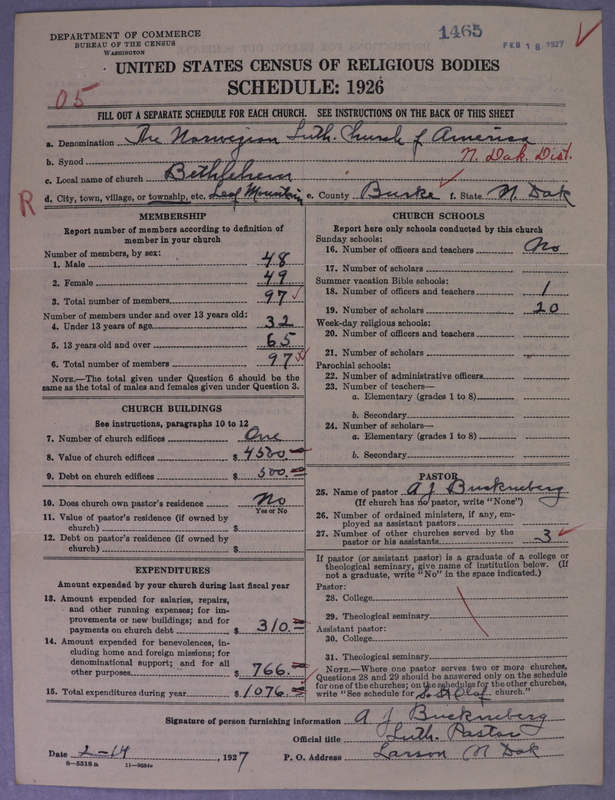 DEPARTMENT OF COMMERCE
BUREAU OF THE CENSUS
WASHINGTON
1465
FEB 18 1927
UNITED STATES CENSUS OF RELIGIOUS BODIES
SCHEDULE: 1926
05
FILL OUT A SEPARATE SCHEDULE FOR EACH CHURCH. SEE INSTRUCTIONS ON THE BACK OF THIS SHEET
a. Denomination The Norwegian Luth. Church of America
b. Synod N. Dak. Dist.
c. Local name of church Bethlehem
R
d. City, town, village, or township, etc. Leaf Mountain e. County Burke f. State N Dak
MEMBERSHIP
Report number of members according to definition of member in your church
Number of members, by sex:
1. Male 48
2. Female 49
3. Total number of members 97
Number of members under and over 13 years old:
4. Under 13 years of age 32
5. 13 years old and over 65
6. Total number of members 97
NOTE.—The total given under Question 6 should be the same as the total of males and females given under Question 3.
CHURCH BUILDINGS
See instructions, paragraphs 10 to 12
7. Number of church edifices One
8. Value of church edifices $ 4500.
9. Debt on church edifices $ 500.
10. Does church own pastor's residence No
Yes or No
11. Value of pastor's residence (if owned by church) $
12. Debt on pastor's residence (if owned by church) $
EXPENDITURES
Amount expended by your church during last fiscal year
13. Amount expended for salaries, repairs, and other running expenses; for improvements or new buildings; and for payments on church debt $ 310.
14. Amount expended for benevolences, including home and foreign missions; for denominational support; and for all other purposes $ 766.
15. Total expenditures during year $ 1076.
CHURCH SCHOOLS
Report here only schools conducted by this church
Sunday schools:
16. Number of officers and teachers No
17. Number of scholars
Summer vacation Bible schools:
18. Number of officers and teachers 1
19. Number of scholars 20
Week-day religious schools:
20. Number of officers and teachers
21. Number of scholars
Parochial schools:
22. Number of administrative officers
23. Number of teachers—
a. Elementary (grades 1 to 8)
b. Secondary
24. Number of scholars—
a. Elementary (grades 1 to 8)
b. Secondary
PASTOR
25. Name of pastor A J Buckneberg
(If church has no pastor, write "None")
26. Number of ordained ministers, if any, employed as assistant pastors
27. Number of other churches served by the pastor or his assistants 3
If pastor (or assistant pastor) is a graduate of a college or theological seminary, give name of institution below. (If not a graduate, write "No" in the space indicated.)
Pastor:
28. College
29. Theological seminary
Assistant pastor:
30. College
31. Theological seminary
NOTE.—Where one pastor serves two or more churches, Questions 28 and 29 should be answered only on the schedule for one of the churches; on the schedules for the other churches, write "See schedule for St Olaf church."
Signature of person furnishing information A J Buckneberg
Official title Luth. Pastor
Date 2-14, 1927 P. O. Address Larson N Dak
8-5518a 11-9084